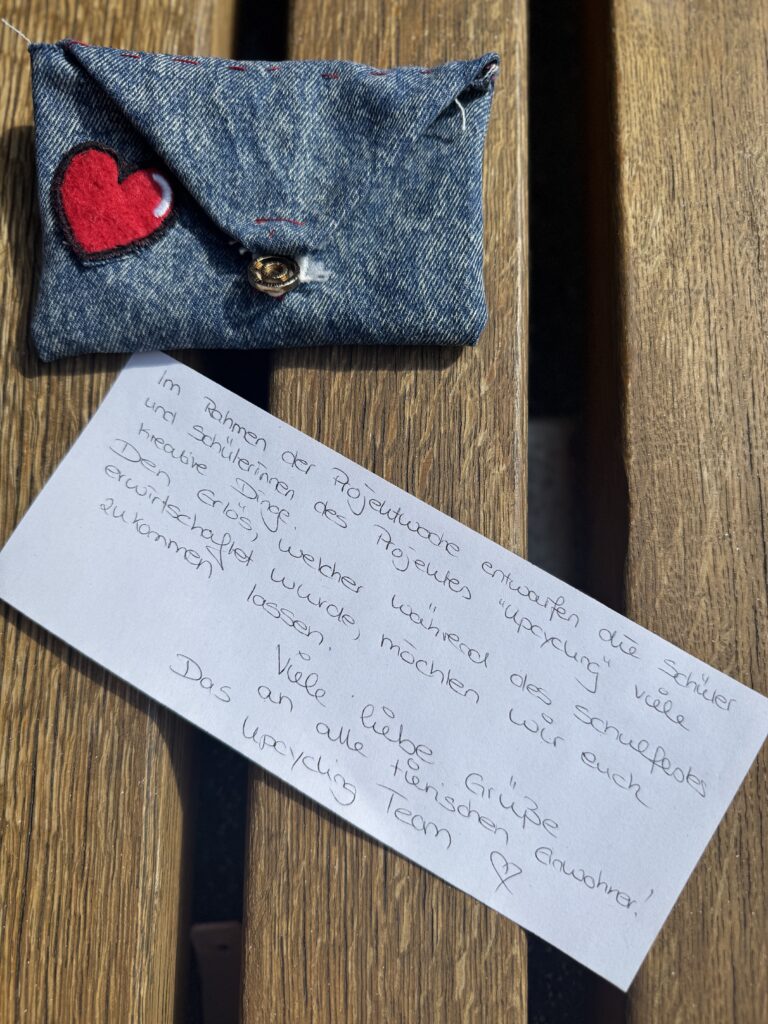 Im Rahmen der Projektwoche entwarfen die Schüler
und Schülerinnen des Projektes "Upcycling" viele
kreative Dinge.
Den Erlös, welcher während des Schulfestes
erwirtschaftet wurde, möchten wir euch
zukommen lassen.
Viele liebe Grüße
an alle tierischen Einwohner!
Das Upcycling Team ♡